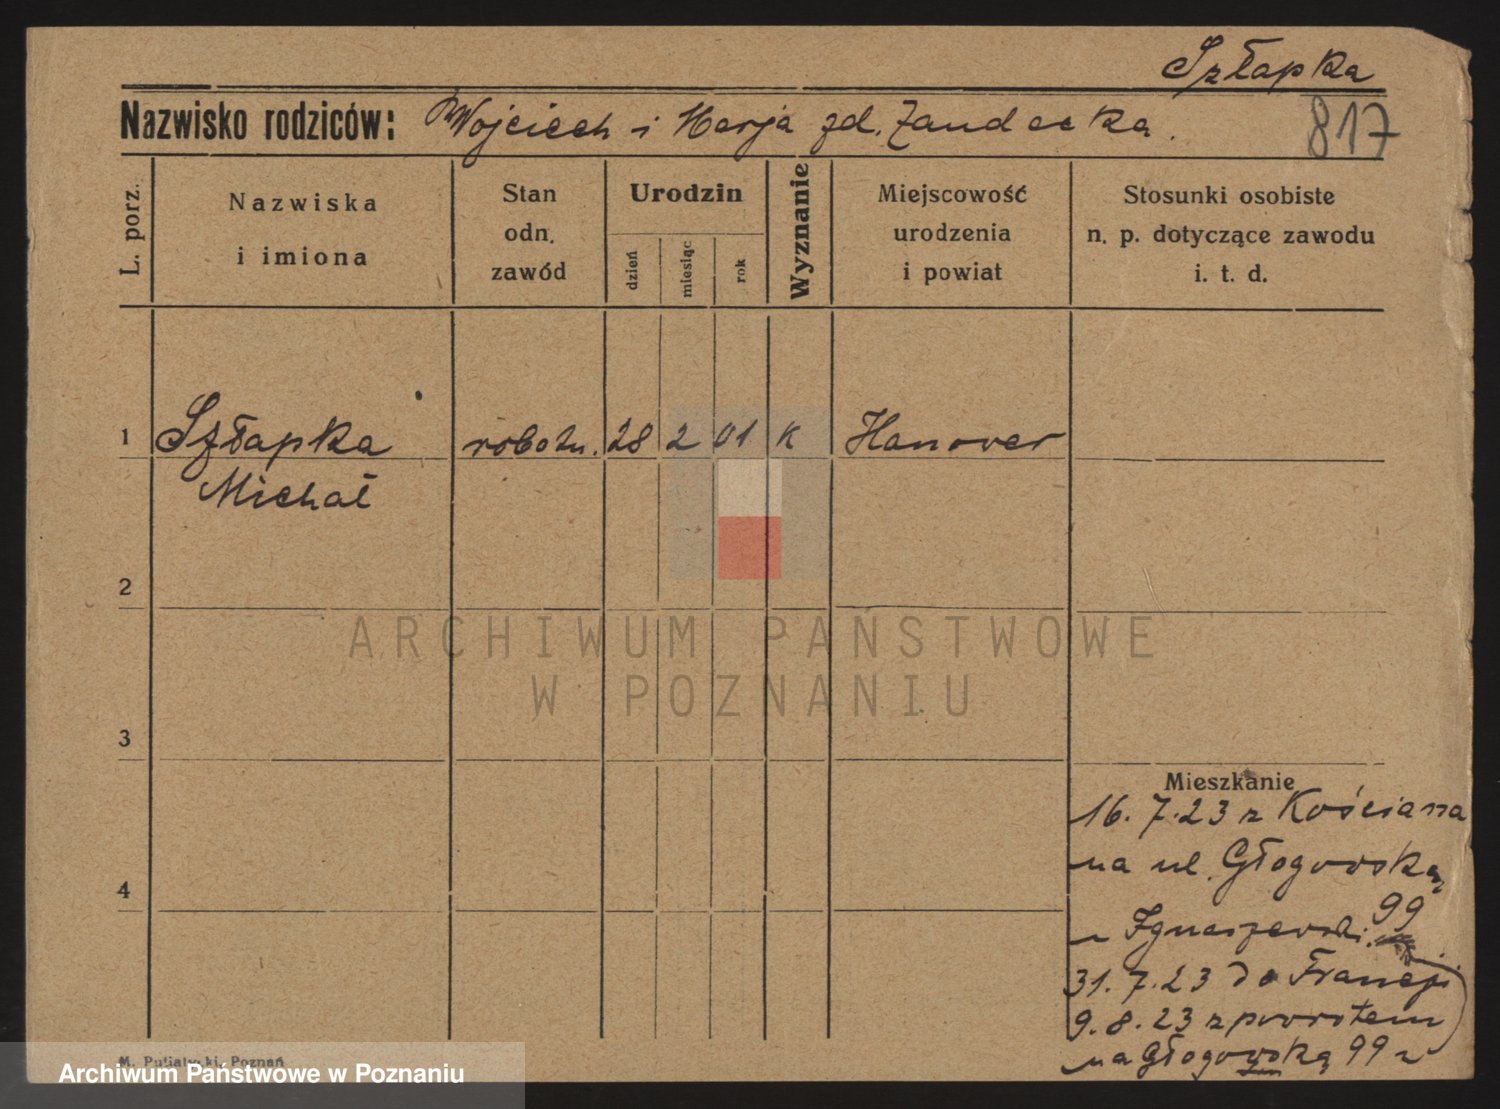 Szłapka
Nazwisko rodziców: Wojciech i Marja zd. Zandecka.
817
L. porz.
Nazwiska
i imiona
Stan
odn.
zawód
Urodzin
dzień
miesiąc
rok
Wyznanie
Miejscowość
urodzenia
i powiat
Stosunki osobiste
n. p. dotyczące zawodu
i. t. d.
1 Szłapka robotn. 28 2 01 K Hanower
Michał
2
ARCHIWUM PAŃSTWOWE
W POZNANIU
3
Mieszkanie
16.7.23 z Kościana
na ul. Głogowską
99
u Ignaszewski.
31.7.23 do Francji
9.8.23 z powrotem
na Głogowską 99 u
4
M. Putiatycki, Poznań
Archiwum Państwowe w Poznaniu